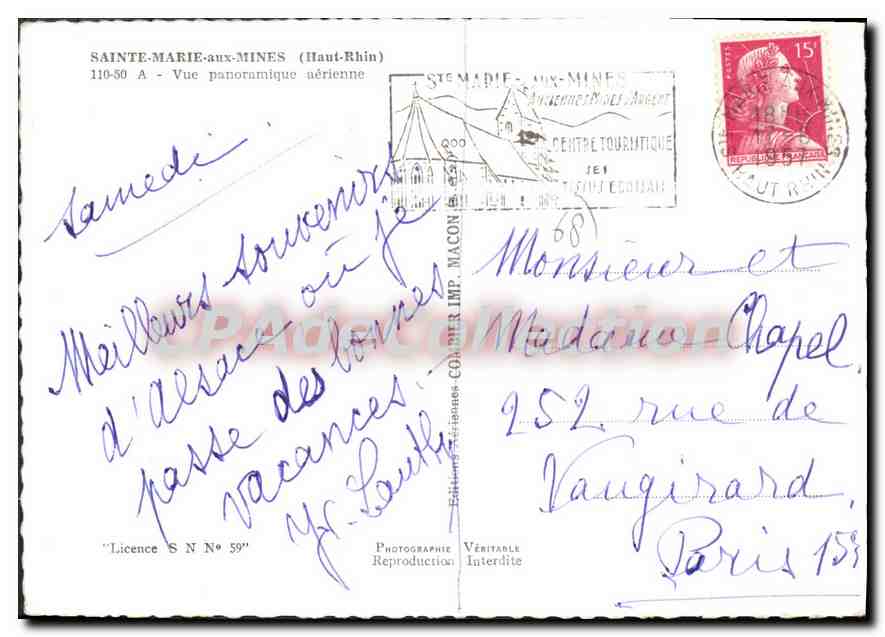 SAINTE-MARIE-aux-MINES (Haut-Rhin)
110-50 A - Vue panoramique aérienne
Samedi.
Meilleurs souvenirs
d'Alsace où je
passe des bonnes
vacances.
"Licence S N Nº 59"
PHOTOGRAPHIE VÉRITABLE
Reproduction Interdite
Editions Aériennes COMBIER IMP. MACON
STE MARIE-AUX-MINES
ANCIENNES MINES D'ARGENT
CENTRE TOURISTIQUE
SES
TISSUS ECOSSAIS
POSTES
15F
REPUBLIQUE FRANÇAISE
HAUT RHIN
68
Monsieur et
Madame Chapel
252 rue de
Vaugirard
Paris 15
CPAdeCollection